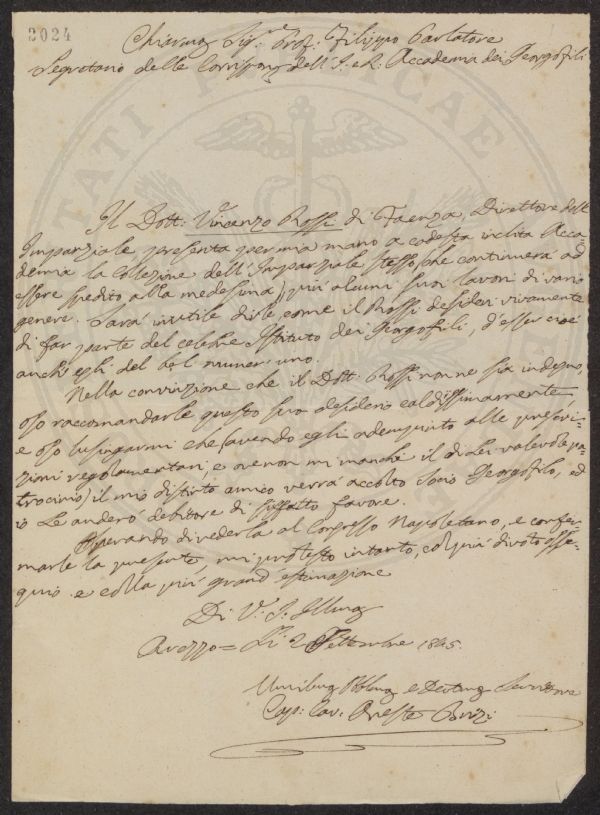 2024
Chiarmo Sig.r Prof: Filippo Parlatore
Segretario delle Corrispze dell'I. e R. Accademia dei Georgofili
Il Dott. Vincenzo Rossi di Faenza, Direttore dell'
Imparziale presenta per mia mano a codesta inclita Acca-
demia la Collezione dell'Imparziale stesso, che continuerà ad
essere spedito alla medesima, più alcuni suoi lavori di vario
genere. Sarà inutile dirle come il Rossi desideri vivamente
di far parte del celebre Istituto dei Georgofili, d'esser cioè
anch'egli del bel numer'uno.
Nella convinzione che il Dott. Rossi non ne sia indegno,
oso raccomandarle questo suo desiderio caldissimamente,
e oso lusingarmi che (avendo egli adempiuto alle prescri-
zioni regolamentari, e ove non mi manchi il di Lei valevole pa-
trocinio) il mio distinto amico verrà accolto Socio Georgofilo, ed
io Le anderò debitore di siffatto favore.
Sperando di vederla al Congresso Napoletano, e confer-
marle la presente, mi protesto intanto, col più divoto osse-
quio e colla più grand'estimazione
Di V. S. Illma
Arezzo = Li 2 Settembre 1845.
Umilmo Obblmo e Devtmo Servitore
Cap: Cav. Oreste Brizi
TATI PUBLICAE